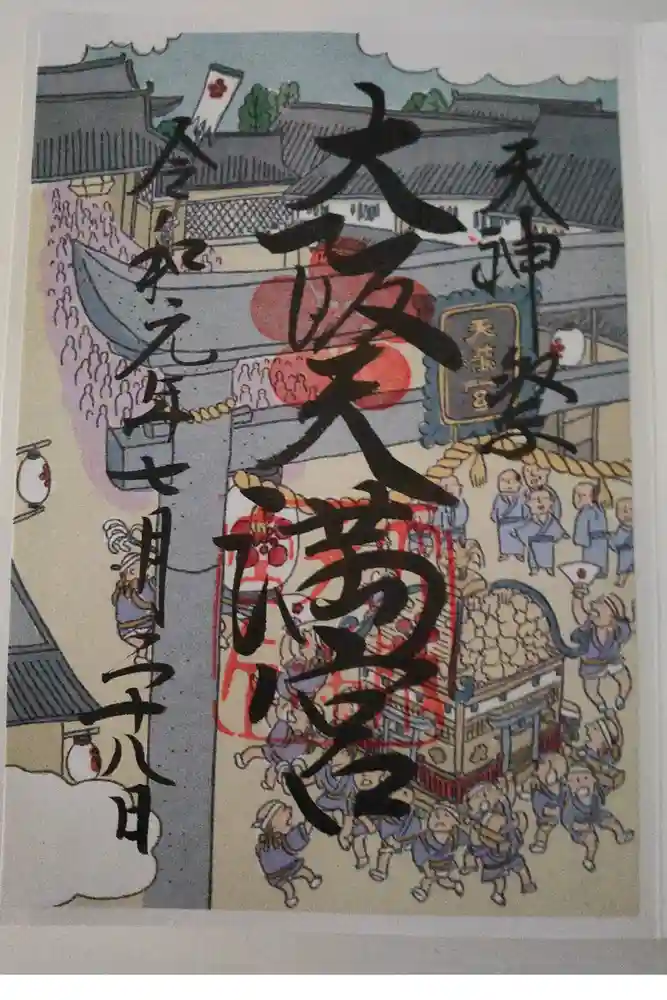 天神祭
大阪天満宮
天満宮
令和元年七月二十八日